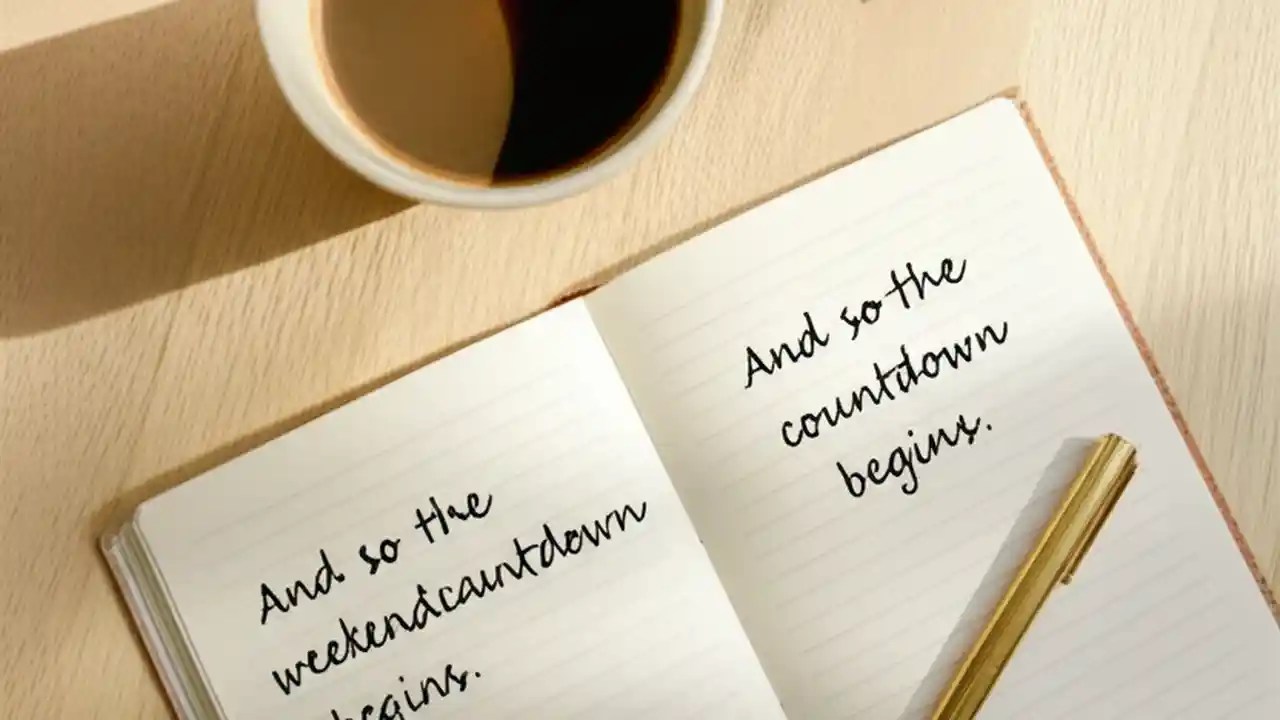 And so the
weekendcountdown
begins.
And so the
countdown
begins.